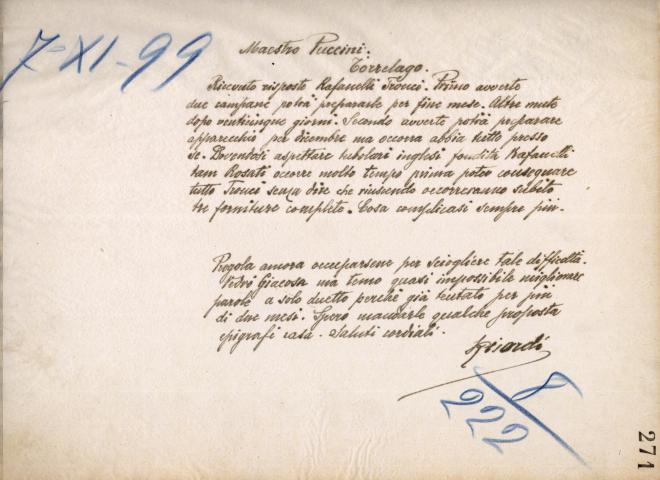 7-XI-99
Maestro Puccini.
Torrelago.
Ricevuto risposte Rafanelli Tronci. Primo avverte
due campane potrà prepararle per fine mese. Altre mute
dopo venticinque giorni. Secondo avverte potrà preparare
apparecchio per dicembre ma occorra abbia tutto presso
se. Doventosi aspettare tubolari inglesi fondità Rafanelli
tam Rosati occorre molto tempo prima poter consegnare
tutto Tronci senza dire che riuscendo occorreranno subito
tre forniture complete. Cosa complicasi sempre più.
Pregola ancora occuparsene per sciogliere tale difficoltà.
Vedrò Giacosa ma temo quasi impossibile migliorare
parole a solo duetto perchè già tentato per più
di due mesi. Spero mandarle qualche proposta
epigrafe casa. Saluti cordiali.
Ricordi
8/222
271